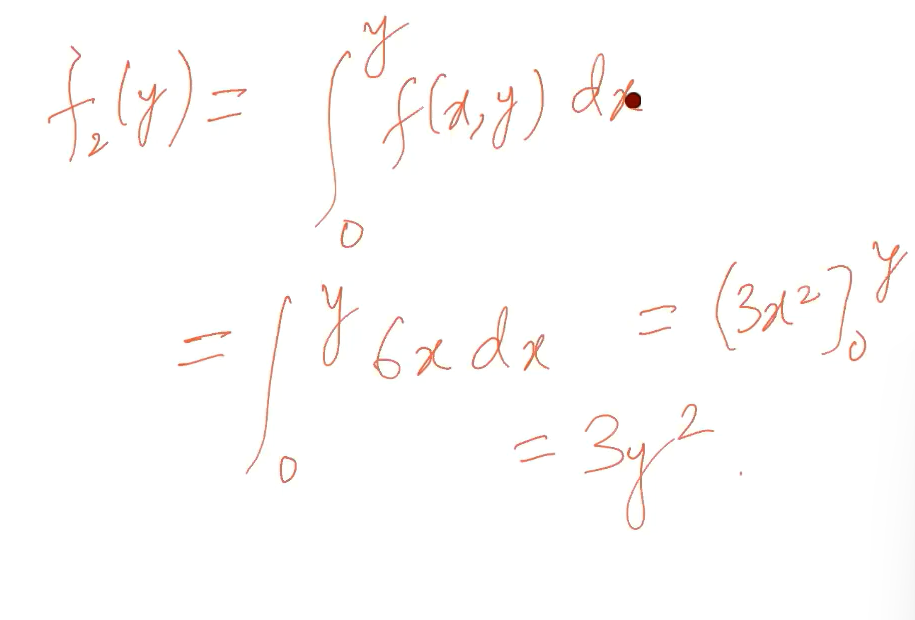 f₂(y) = ∫₀ʸ f(x,y) dx
= ∫₀ʸ 6x dx = (3x²]₀ʸ
= 3y².